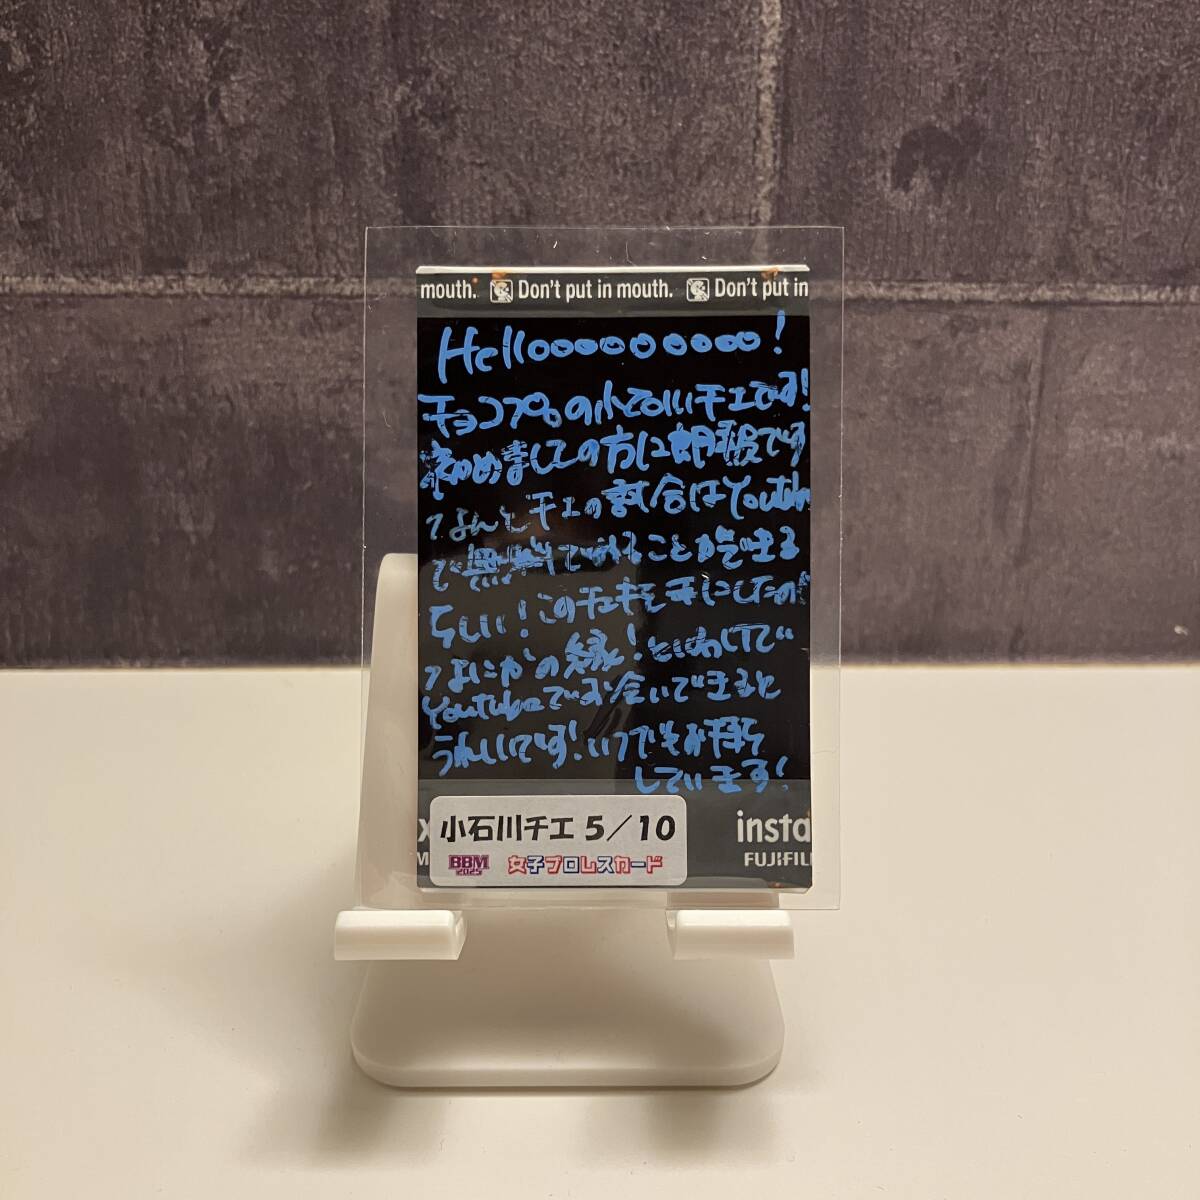 mouth. Don't put in mouth. Don't put in
Hellooooooooo!
チョコプロの小石川チエです!
初めましての方に朗報です
なんとチエの試合はYoutube
で無料でみれることができる
らしい!このチェキを手にしたのも
なにかの縁!というわけで
Youtubeでお会いできると
うれしいです!いつでもお待ち
しています!
小石川チエ 5/10
BBM 2025 女子プロレスカード
insta
FUJIFIL